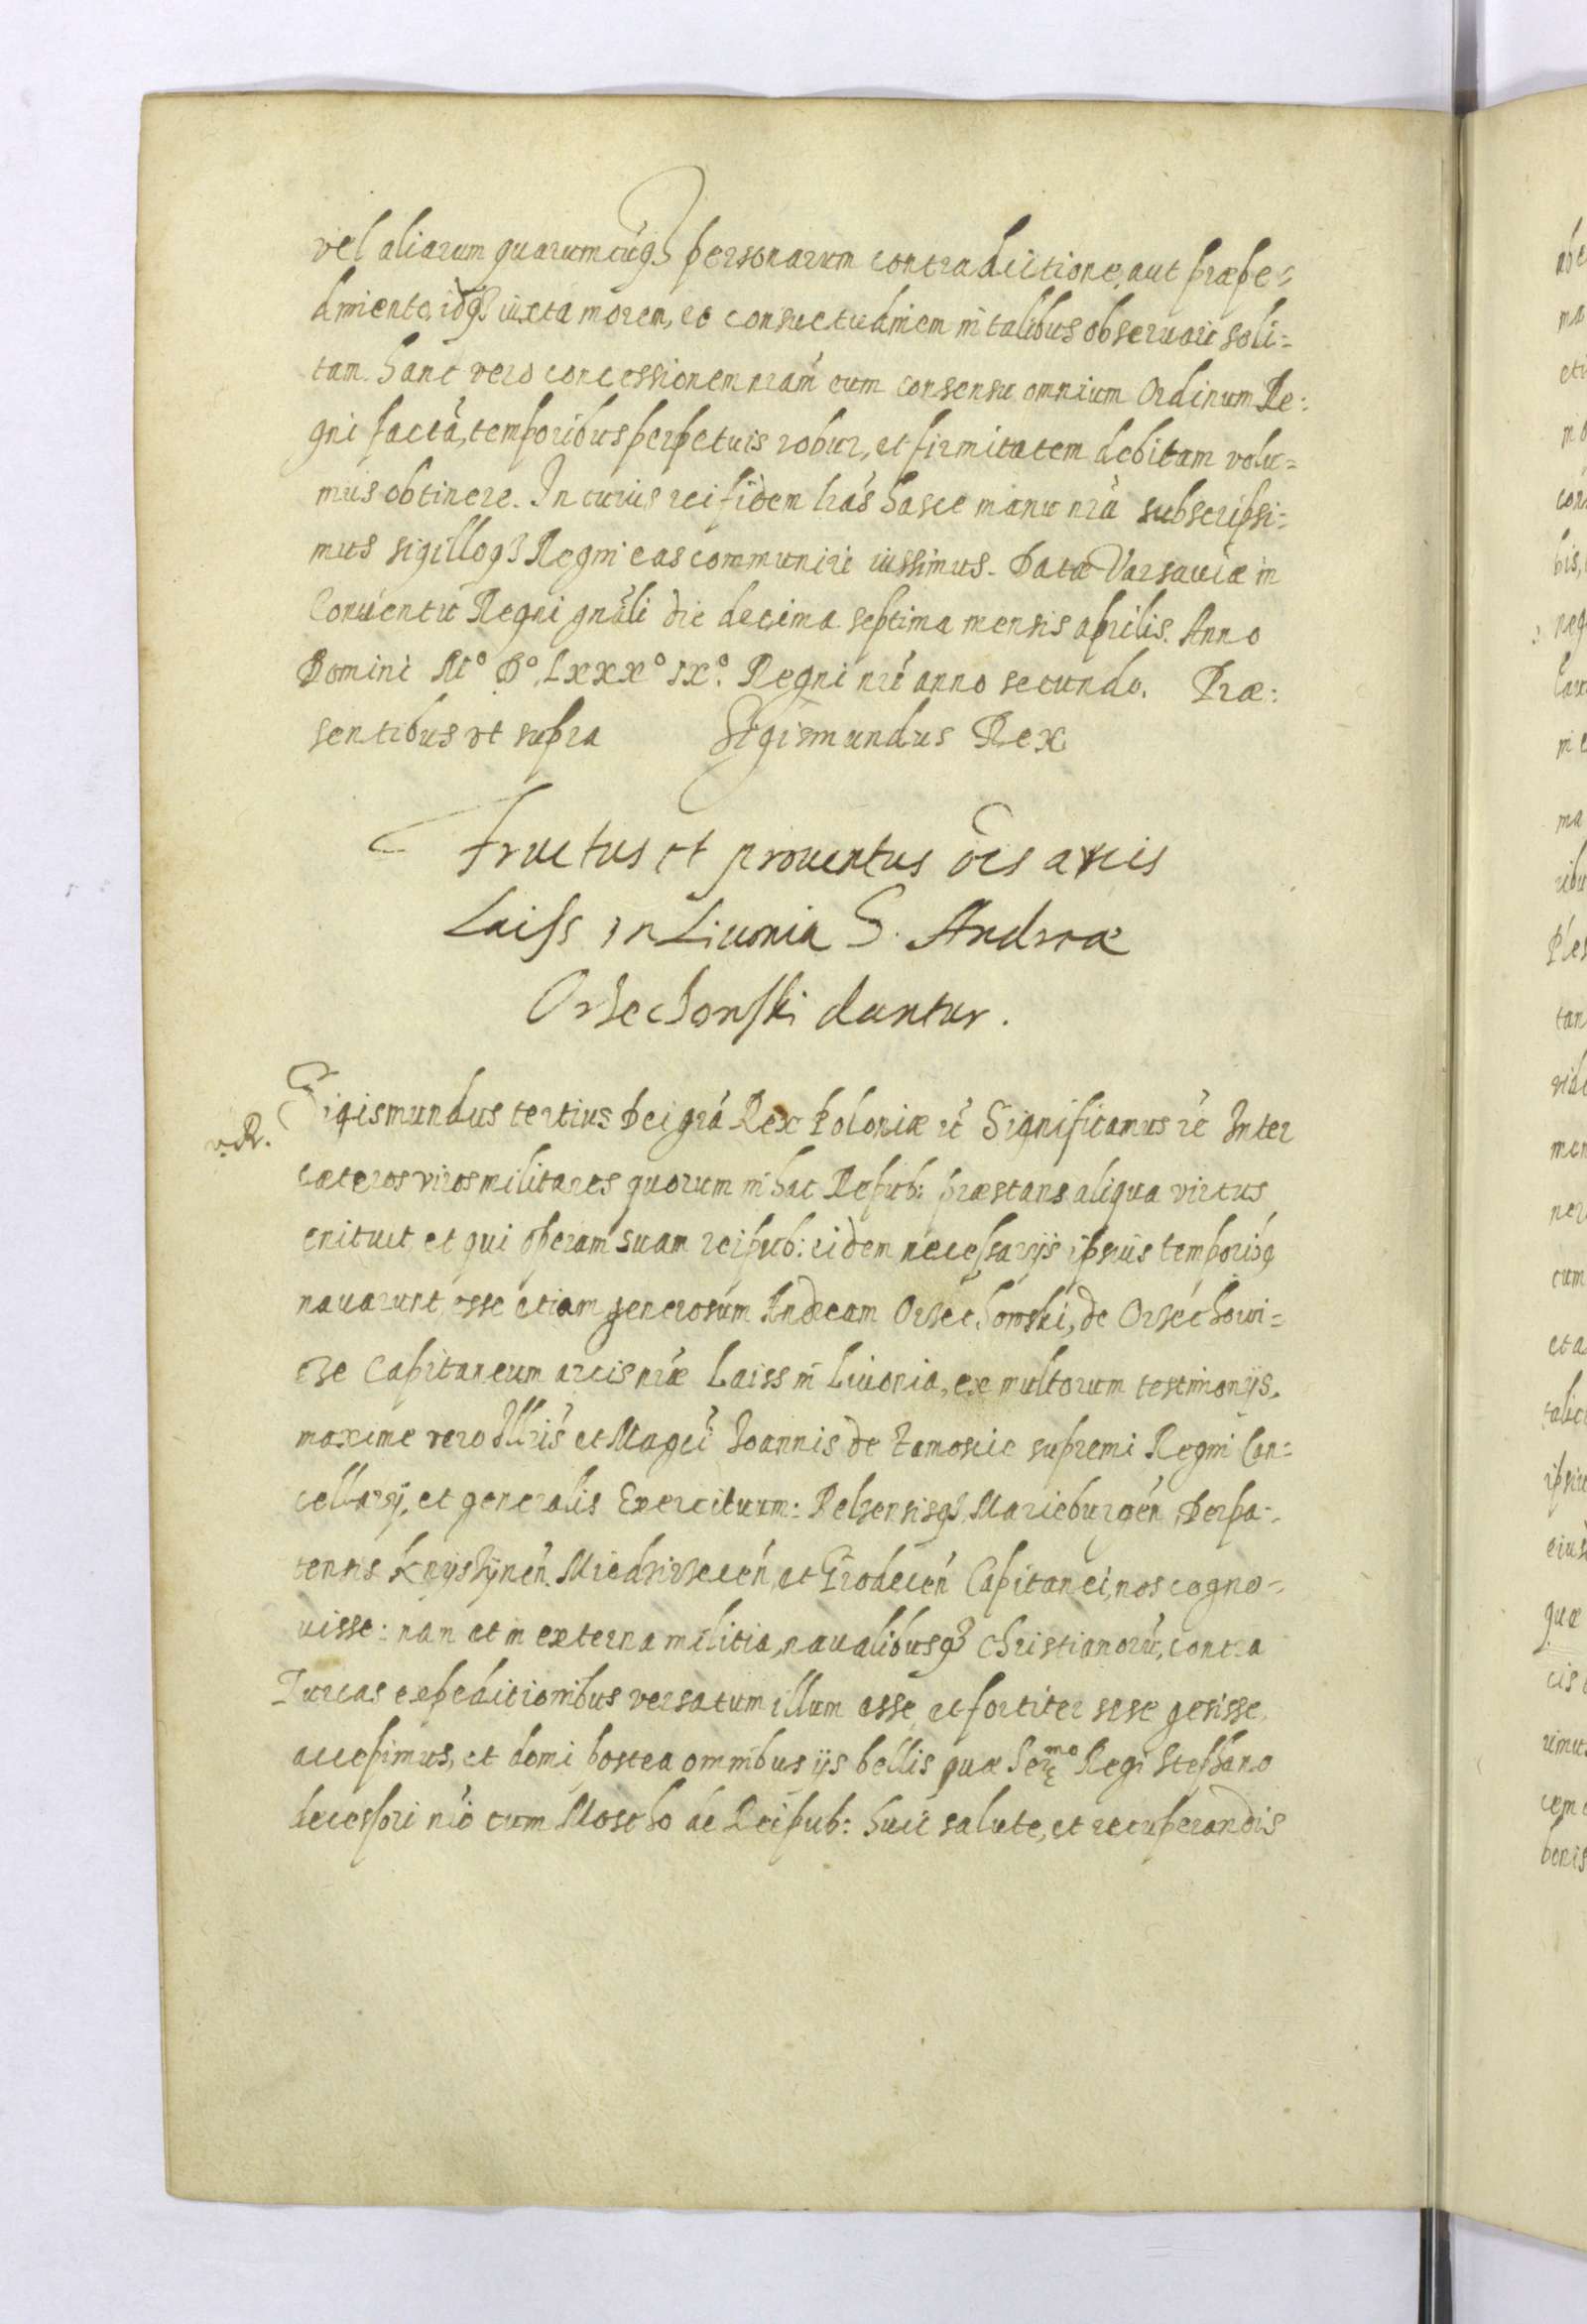 vel aliarum quarumcuq₃ personarum contradictione, aut præpe-
dimento, idq₃ iuxta morem, et consuetudinem in talibus observari soli=
tam. hanc vero concessionem nrām cum consensu omnium Ordinum Re:
gni factā, temporibus perpetuis robur, et firmitatem debitam volu=
mus obtinere. In cuius rei fidem lrās hasce manu nrā subscripsi=
mus sigilloq₃ Regni eas communiri iussimus. Datæ Varsaviæ in
Conventu Regni gnāli die decima septima mensis aprilis. Anno
Domini M° D° Lxxx° ix°. Regni nrī anno secundo. Præ:
sentibus vt supra Sigismundus Rex
Fructus et proventus oēs arcis
Laiss in Liuonia G. Andreæ
Orzechowski dantur.
v. R.
Sigismundus tertius Dei grā Rex Poloniæ etc̄ Significamus etc̄ Inter
cæteros viros militares quorum in hac Repub: præstans aliqua virtus
enituit, et qui operam suam reipub: eidem necessarijs ipsius temporibq
navarunt, esse etiam generosum Andream Orzechowski, de Orzechowi=
cze Capitaneum arcis nræ Laiss in Livonia, ex multorum testimonijs,
maxime vero Illris et Magci Joannis de Zamoscie supremi Regni Can=
cellarij, et generalis Exercituum: Belzensisq₃, Marieburgen̄, Derpa-
tensis Knyszynen̄. Miedzirzecen̄, et Grodecen̄ Capitanei, nos cogno-
visse: nam et in externa militia, navalibusq₃ Christianorū, contra
Turcas expeditionibus versatum illum esse, et fortiter sese gesisse
accepimus, et domi postea omnibus ijs bellis quæ Ser^mo Regi Stephano
decessori nrō cum Moscho de Reipub: huic salute, et recuperandis